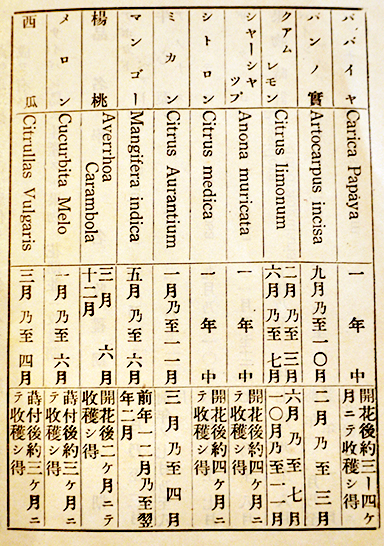 パパイヤ
Carica Papāya
一年中
開花後約三ー四ヶ
月ニテ收穫シ得
パンノ實
Artocarpus incisa
九月乃至一〇月
二月乃至三月
クアム
レモン
Citrus limonum
二月乃至三月
六月乃至七月
六月乃至七月
一〇月乃至一一月
シャーシャ
ップ
Anona muricata
一年中
開花後約四ヶ月ニ
テ收穫シ得
シトロン
Citrus medica
一年中
開花後約四ヶ月ニ
テ收穫シ得
ミカン
Citrus Aurantium
一月乃至一一月
三月乃至四月
マンゴー
Mangifera indica
五月乃至六月
前年一二月乃至翌
年二月
楊桃
Averrhoa
Carambola
三月 六月
十二月
開花後二ヶ月ニテ
收穫シ得
メロン
Cucurbita Melo
一月乃至六月
蒔付後約三ヶ月ニ
テ收穫シ得
西瓜
Citrullas Vulgaris
三月乃至四月
蒔付後約三ヶ月ニ
テ收穫シ得